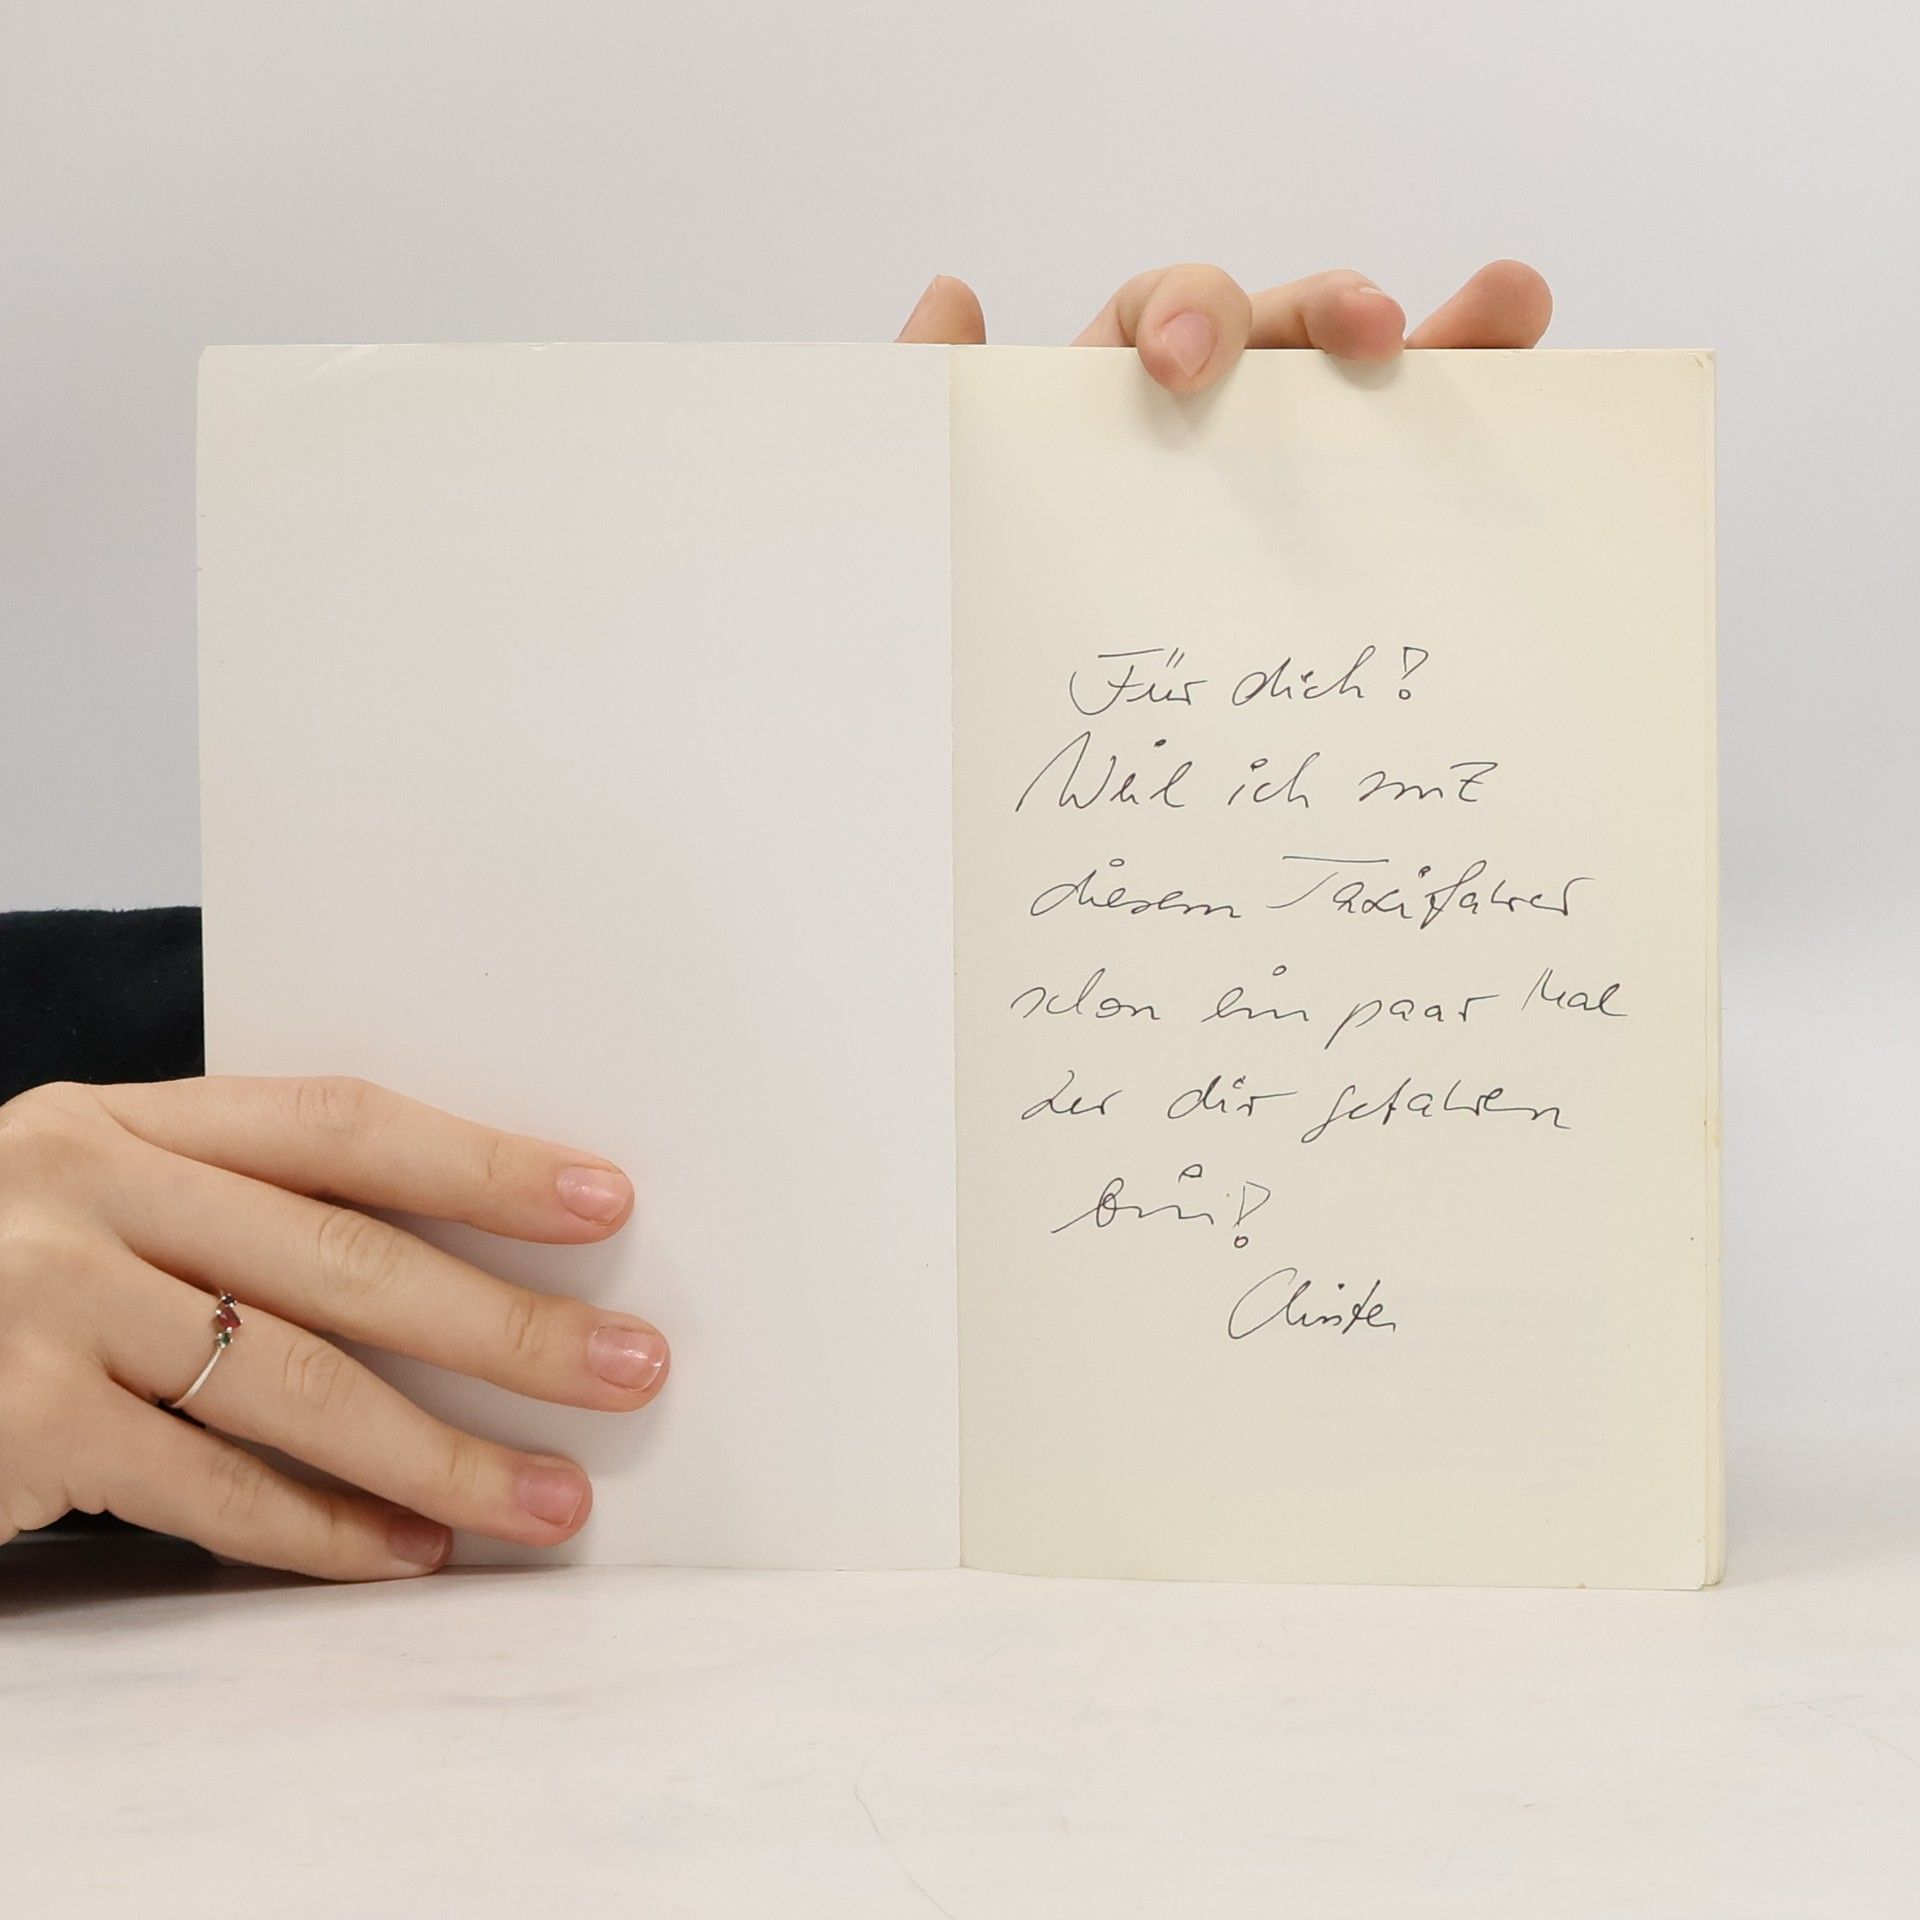 Für dich!
Weil ich mit
diesem Taxifahrer
schon ein paar Mal
zu dir gefahren
bin!